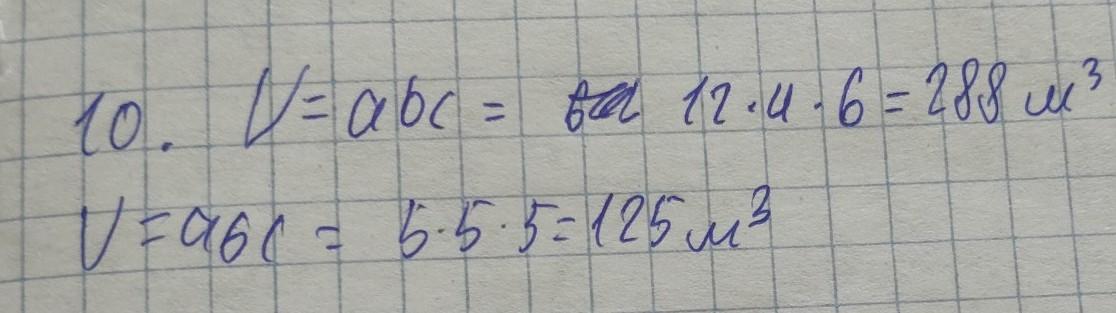 10. V = abc = 12 · 4 · 6 = 288 м³
V = abc = 5 · 5 · 5 = 125 м³